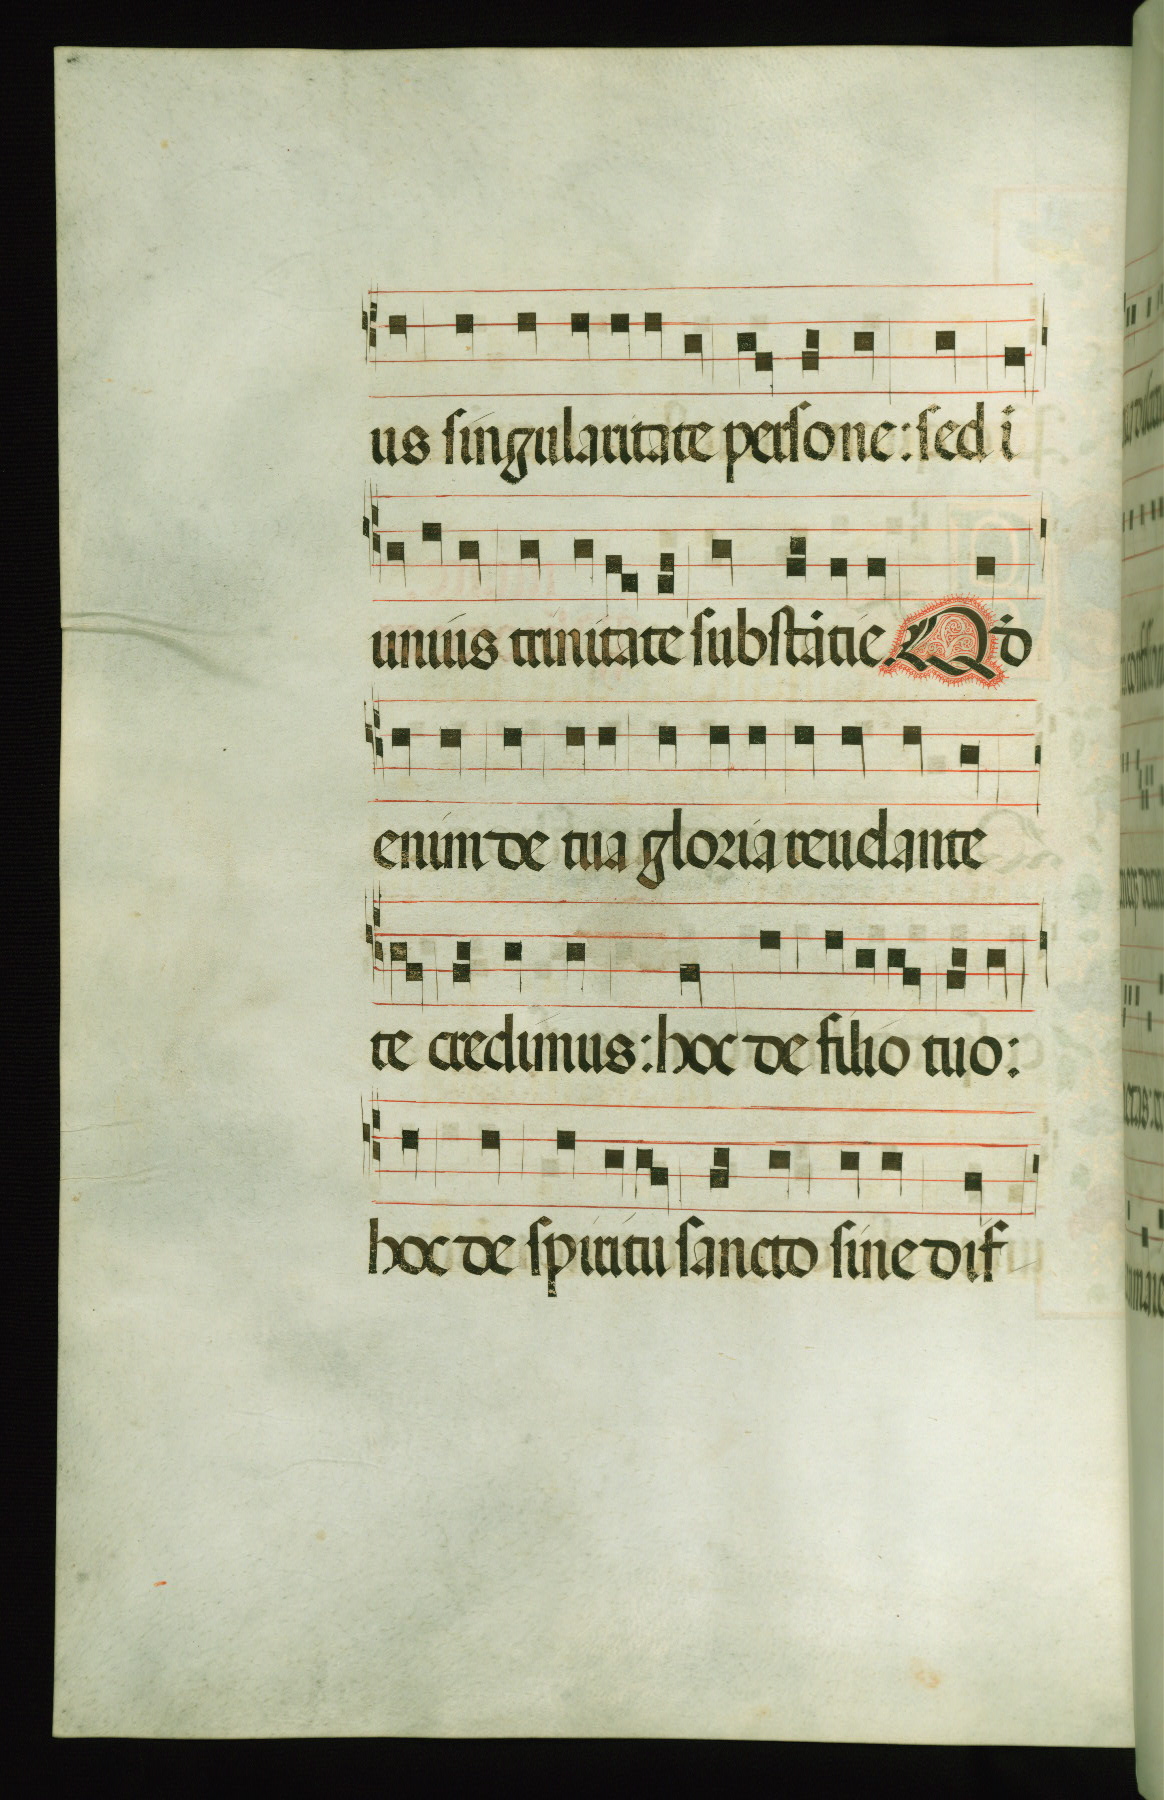 us singularitate persone: sed i
unius trinitate substātie Qd̄
enim de tua gloria reuelante
te credimus: hoc de filio tuo:
hoc de spiritu sancto sine dif